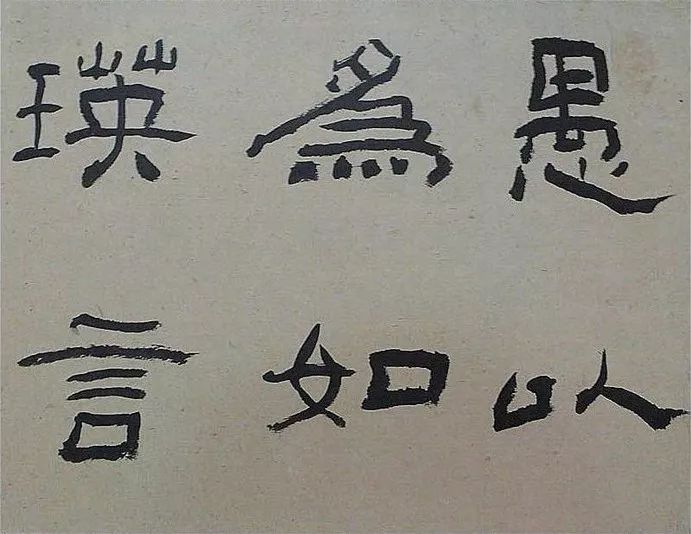 愚以
爲如
瑛言